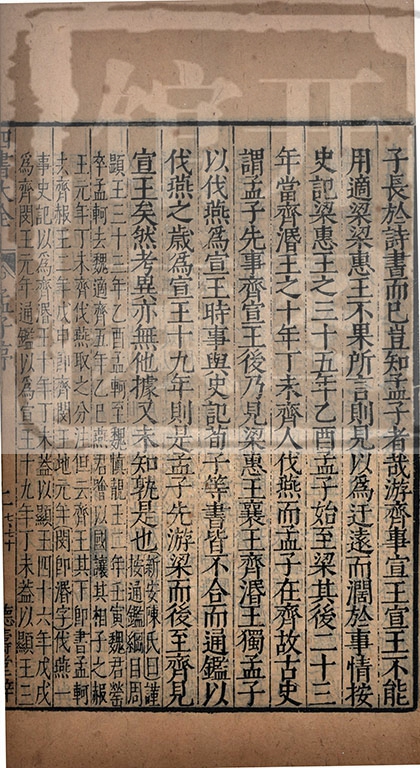 子長於詩書而已豈知孟子者哉游齊事宣王宣王不能
用適梁梁惠王不果所言則見以為迂遠而濶於事情按
史記梁惠王之三十五年乙酉孟子始至梁其後二十三
年當齊湣王之十年丁未齊人伐燕而孟子在齊故古史
謂孟子先事齊宣王後乃見梁惠王襄王齊湣王獨孟子
以伐燕為宣王時事與史記荀子等書皆不合而通鑑以
伐燕之歲為宣王十九年則是孟子先游梁而後至齊見
宣王矣然考異亦無他據又未知孰是也
新安陳氏曰謹
按通鑑綱目周
顯王三十三年乙酉孟軻至魏慎靚王二年壬寅魏君罃
卒孟軻去魏適齊五年乙巳燕君噲以國讓其相子之赧
王元年丁未齊伐燕取之分注但云齊王其下即書孟軻
去齊赧王二年戊申即齊閔王地元年閔即湣字伐燕一
事史記以為齊湣王十年丁未蓋以顯王四十六年戊戌
為齊閔王元年通鑑以為宣王十九年丁未蓋以顯王三
四書大全
孟子序
七七十